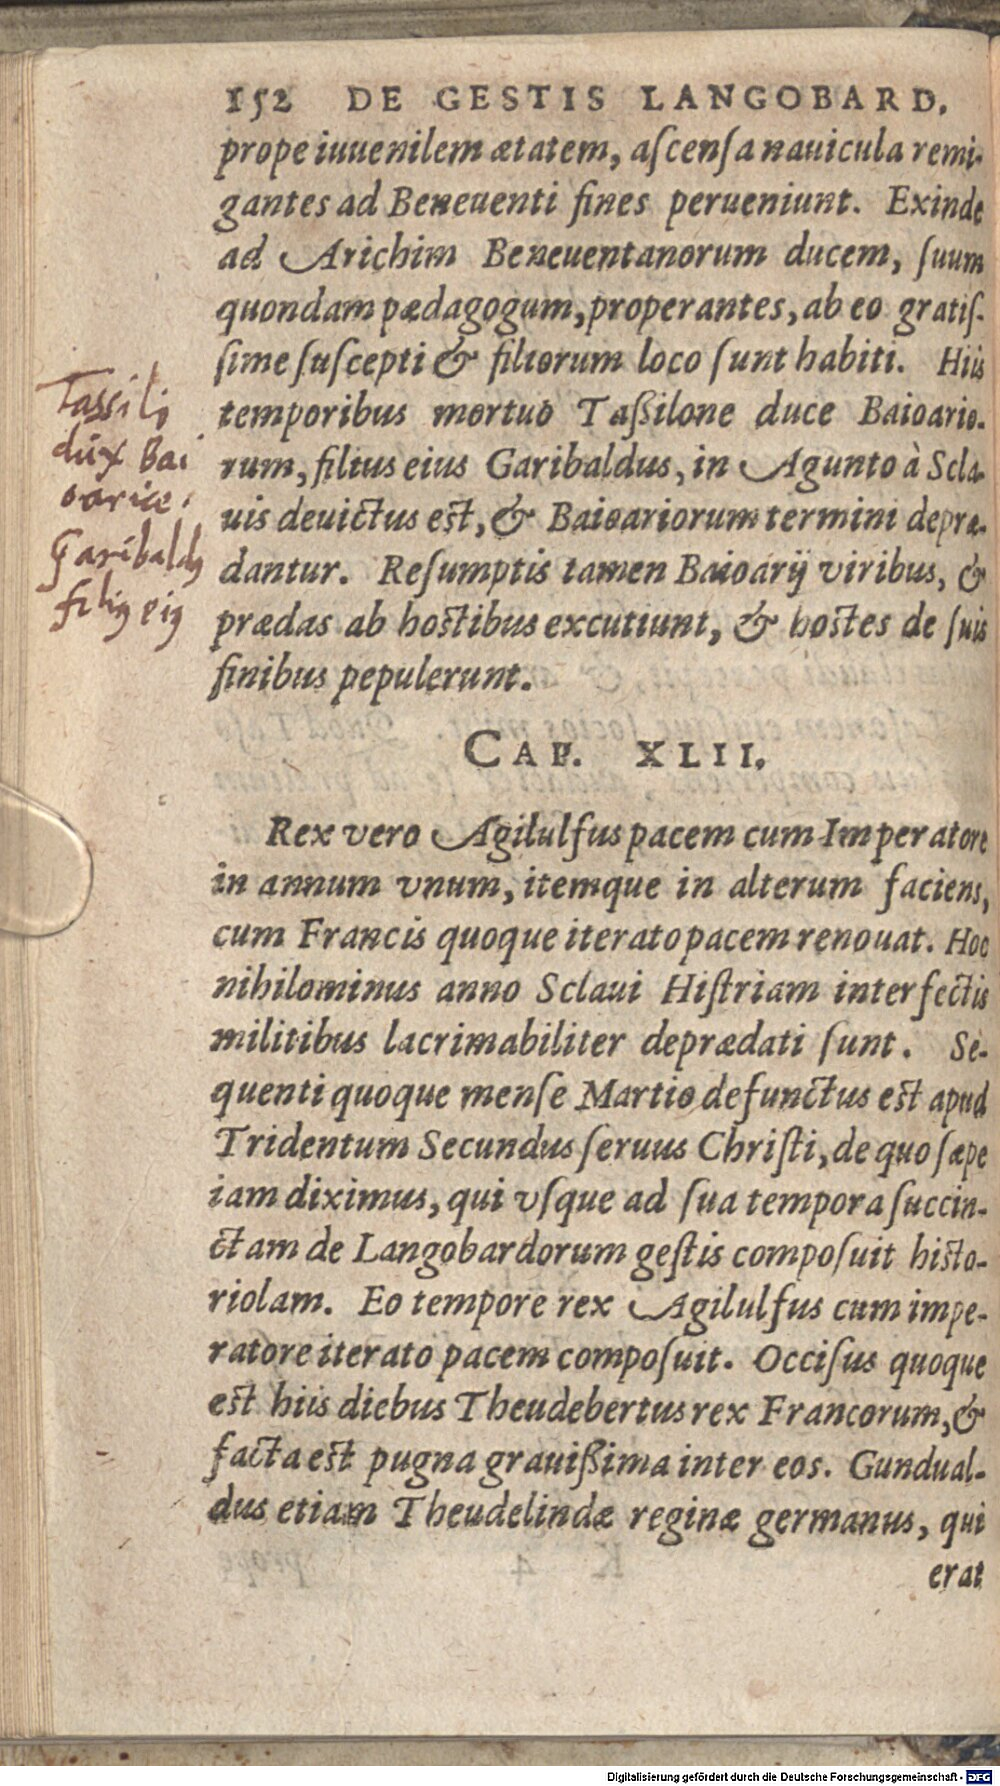 152 DE GESTIS LANGOBARD.
prope iuuenilem ætatem, aſcenſa nauicula remi-
gantes ad Beneuenti fines perueniunt. Exinde
ad Arichim Beneuentanorum ducem, ſuum
quondam pædagogum, properantes, ab eo gratiſ-
ſime ſuſcepti & filiorum loco ſunt habiti. Hiis
temporibus mortuo Taßilone duce Baioario-
rum, filius eius Garibaldus, in Agunto à Scla-
uis deuictus est, & Baioariorum termini depræ-
dantur. Reſumptis tamen Baioarij viribus, &
prædas ab hostibus excutiunt, & hostes de ſuis
finibus pepulerunt.
Tassili9
dux Bai
oariæ.
Garibald9
fili9 ei9
CAP. XLII.
Rex vero Agilulfus pacem cum Imperatore
in annum vnum, itemque in alterum faciens,
cum Francis quoque iterato pacem renouat. Hoc
nihilominus anno Sclaui Hiſtriam interfectis
militibus lacrimabiliter deprædati ſunt. Se-
quenti quoque menſe Martio defunctus est apud
Tridentum Secundus ſeruus Chriſti, de quo ſæpe
iam diximus, qui vſque ad ſua tempora ſuccin-
ctam de Langobardorum geſtis compoſuit histo-
riolam. Eo tempore rex Agilulfus cum impe-
ratore iterato pacem compoſuit. Occiſus quoque
est hiis diebus Theudebertus rex Francorum, &
facta est pugna grauißima inter eos. Gundual-
dus etiam Theudelindæ reginæ germanus, qui
erat
Digitalisierung gefördert durch die Deutsche Forschungsgemeinschaft - DFG